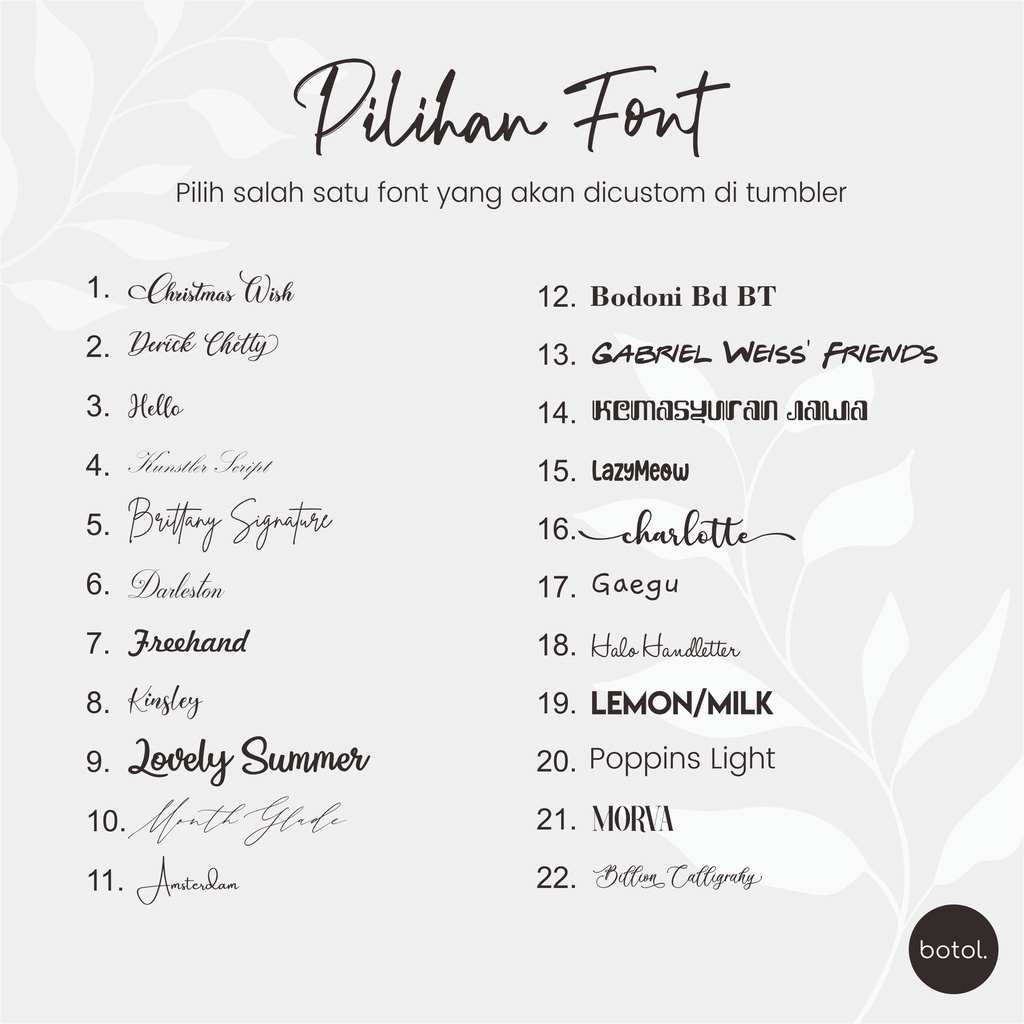 Pilihan Font
Pilih salah satu font yang akan dicustom di tumbler
1. Christmas Wish
2. Derick Chetty
3. Hello
4. Kunstler Script
5. Brittany Signature
6. Darleston
7. Freehand
8. Kinsley
9. Lovely Summer
10. Month Glade
11. Amsterdam
12. Bodoni Bd BT
13. Gabriel Weiss' Friends
14. Kemasyuran Jawa
15. LazyMeow
16. charlotte
17. Gaegu
18. Halo Handletter
19. LEMON/MILK
20. Poppins Light
21. MORVA
22. Billion Calligrahy
botol.